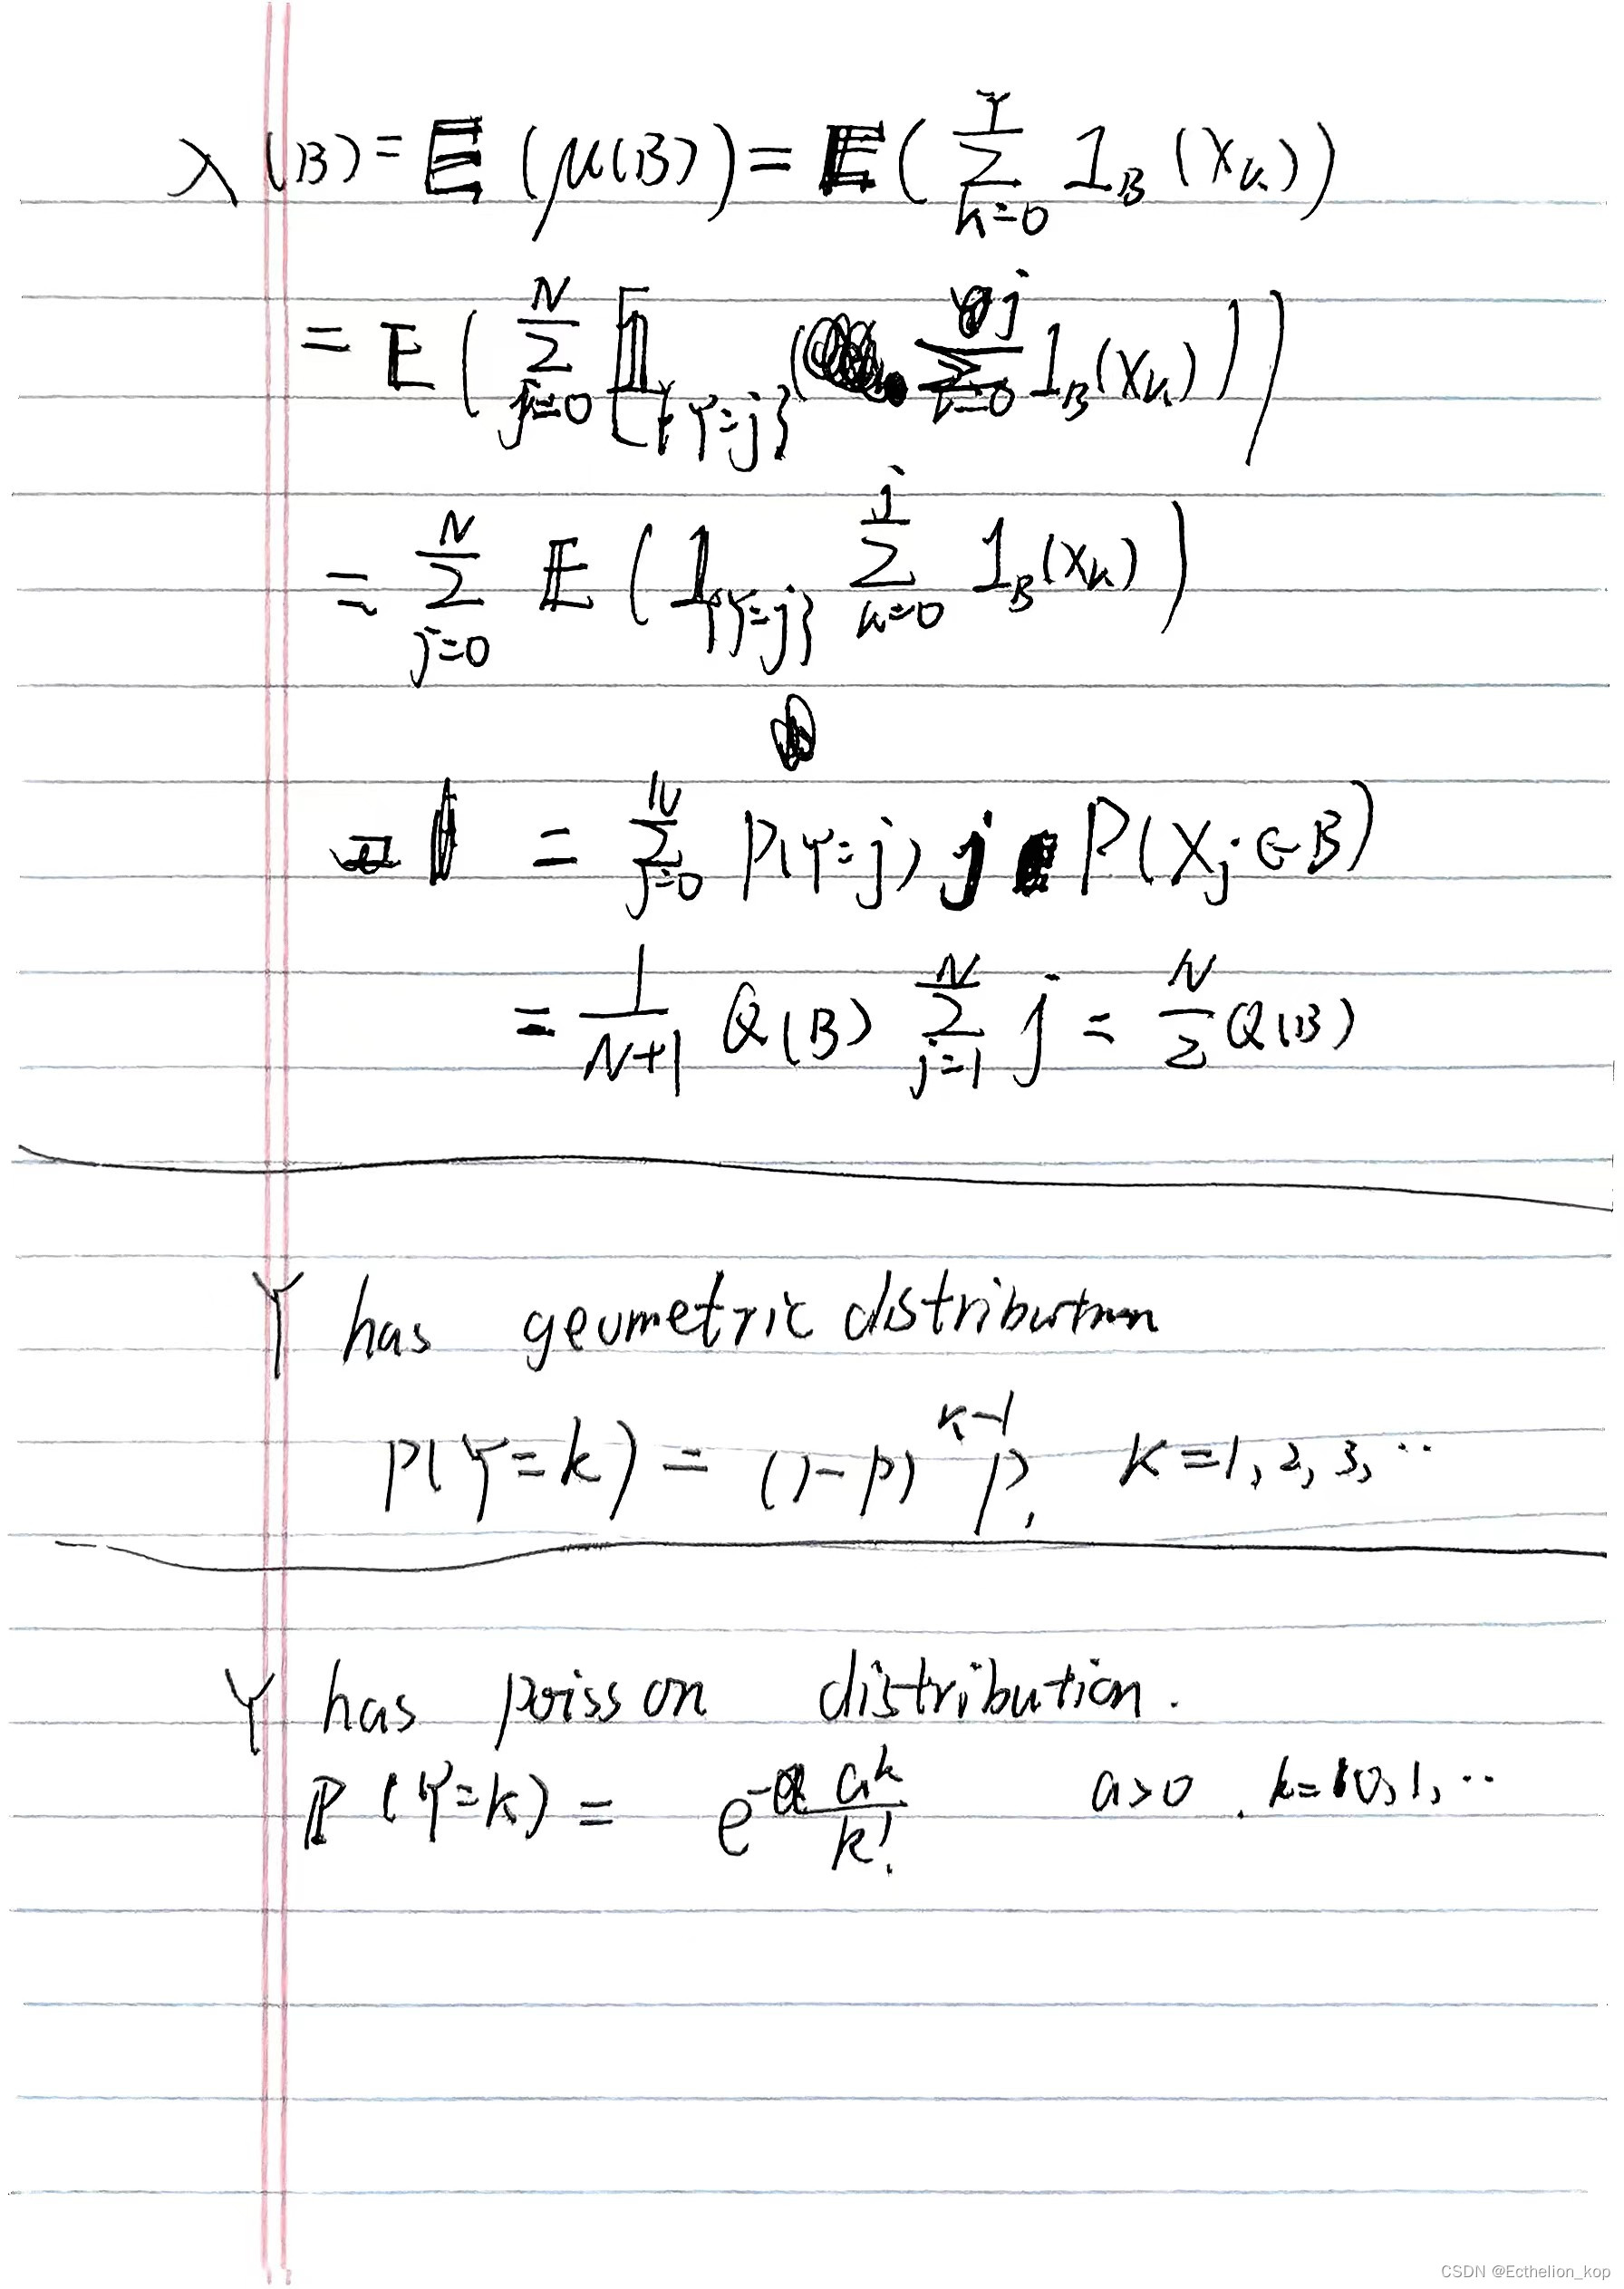 λ(B) = 𝔼(μ(B)) = 𝔼(∑_{k=0}^{Y} 1_B(X_k))
= 𝔼(∑_{j=0}^{N} [1_{{Y=j}} (∑_{k=0}^{j} 1_B(X_k)))
= ∑_{j=0}^{N} 𝔼(1_{{Y=j}} ∑_{k=0}^{j} 1_B(X_k))
= ∑_{j=0}^{N} P(Y=j) j P(X_j ∈ B)
= \frac{1}{N+1} Q(B) ∑_{j=1}^{N} j = \frac{N}{2} Q(B)
Y has geometric distribution
P(Y=k) = (1-p)^{k-1} p, k=1,2,3,..
Y has poisson distribution.
ℙ(Y=k) = e^{-a} \frac{a^k}{k!} a>0. k=0,1,..
CSDN @Ecthelion_kop